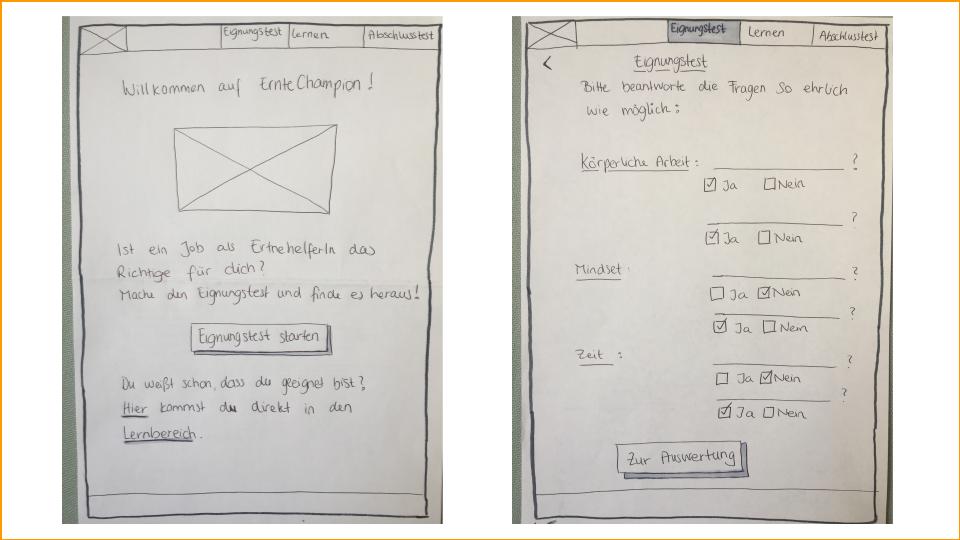 Eignungstest Lernen Abschlusstest
Willkommen auf ErnteChampion!
Ist ein Job als ErtnehelferIn das
Richtige für dich?
Mache den Eignungstest und finde es heraus!
Eignungstest starten
Du weißt schon, dass du geeignet bist?
Hier kommst du direkt in den
Lernbereich.
Eignungstest Lernen Abschlusstest
<
Eignungstest
Bitte beantworte die Fragen so ehrlich
wie möglich:
Körperliche Arbeit: ?
Ja Nein
?
Ja Nein
Mindset: ?
Ja Nein
?
Ja Nein
Zeit: ?
Ja Nein
?
Ja Nein
Zur Auswertung